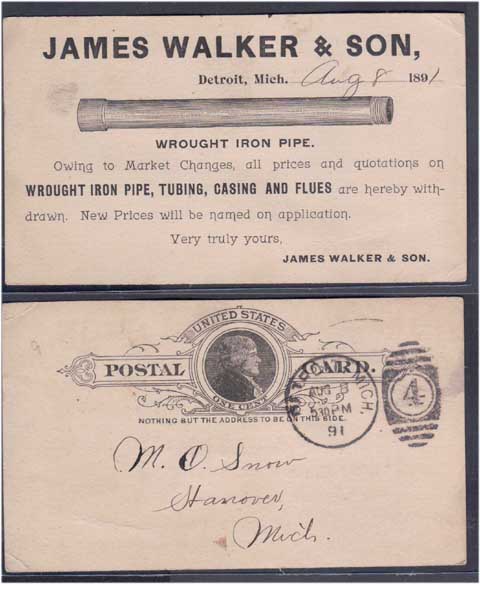 JAMES WALKER & SON,
Detroit, Mich. Aug 8 1891
WROUGHT IRON PIPE.
Owing to Market Changes, all prices and quotations on
WROUGHT IRON PIPE, TUBING, CASING AND FLUES are hereby with-
drawn. New Prices will be named on application.
Very truly yours,
JAMES WALKER & SON.
UNITED STATES
POSTAL CARD.
ONE CENT
NOTHING BUT THE ADDRESS TO BE ON THIS SIDE.
DETROIT, MICH.
AUG 8
530 PM
91
4
M. O. Snow
Hanover,
Mich.